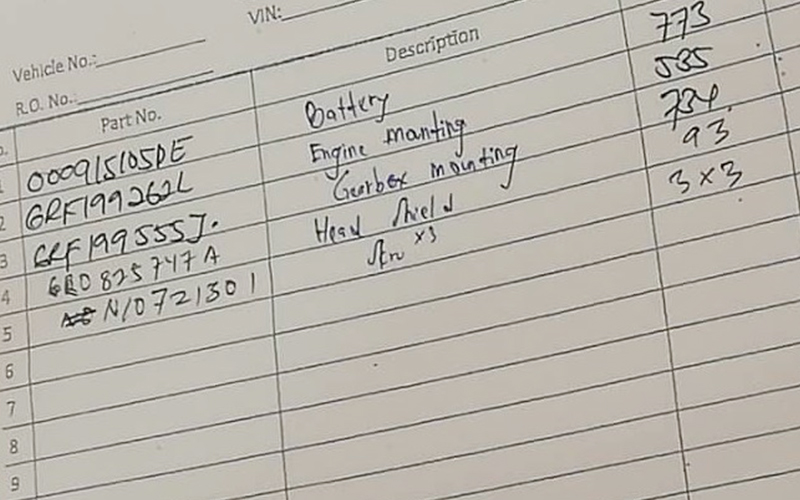 VIN:
Vehicle No.:
R.O. No.:
Part No. Description
1 000915105DE Battery 773
2 6RF199262L Engine manting 535
3 6RF199555J. Gearbox mounting 734.
4 6R0825747A Head shield 93
5 N10721301 x3 3x3
6
7
8
9